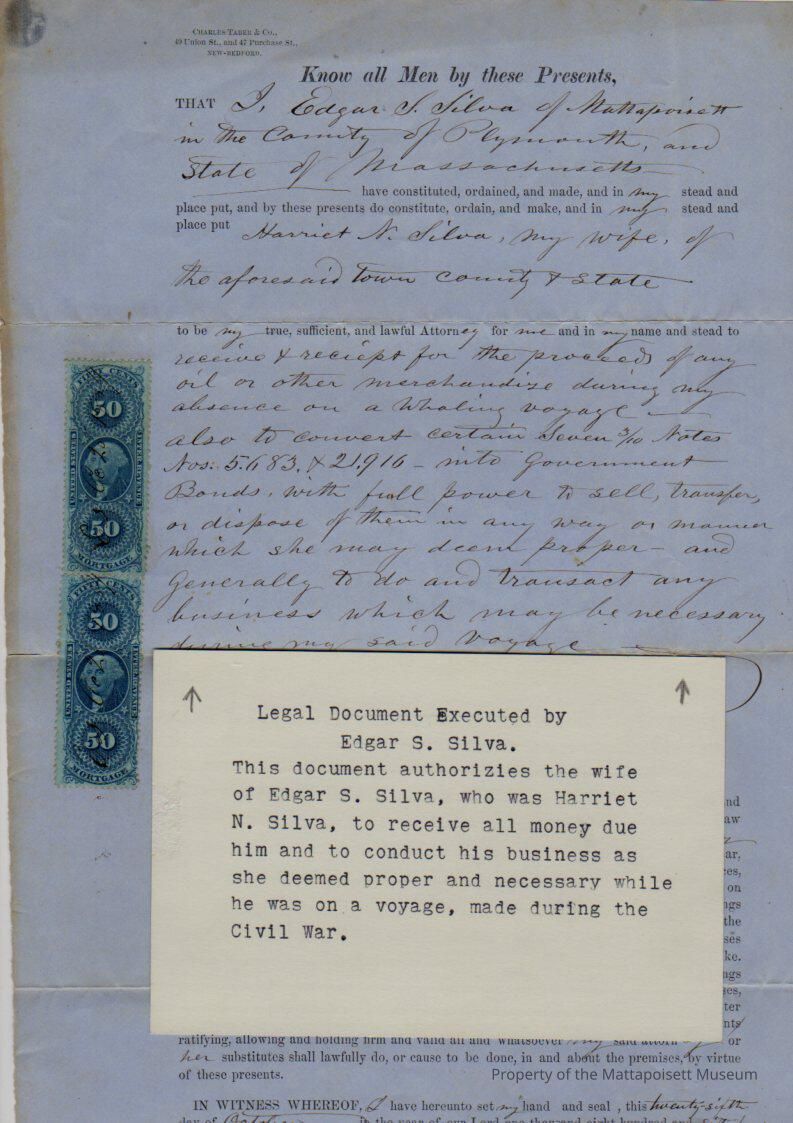 CHARLES TABER & CO.,
49 Union St., and 47 Purchase St.,
NEW-BEDFORD.
Know all Men by these Presents,
THAT I, Edgar S. Silva of Mattapoisett
in the County of Plymouth, and
State of Massachusetts
have constituted, ordained, and made, and in my stead and
place put, and by these presents do constitute, ordain, and make, and in my stead and
place put Harriet N. Silva, my wife, of
the aforesaid town county & State
to be my true, sufficient, and lawful Attorney for me and in my name and stead to
receive & reciept for the proceeds of any
oil or other merchandize during my
absence on a Whaling voyage
also to convert certain Seven 3/10 Notes
Nos. 5.683. & 21.916 - into Government
Bonds, with full power to sell, transfer,
or dispose of them in any way or manner
which she may deem proper - and
Generally to do and transact any
business which may be necessary
during my said voyage
FIFTY CENTS
50
UNITED STATES
INTER. REVENUE
50
MORTGAGE
FIFTY CENTS
50
UNITED STATES
INTER. REVENUE
50
MORTGAGE
Legal Document Executed by
Edgar S. Silva.
This document authorizies the wife
of Edgar S. Silva, who was Harriet
N. Silva, to receive all money due
him and to conduct his business as
she deemed proper and necessary while
he was on a voyage, made during the
Civil War.
nd
aw
ar,
es,
on
ngs
the
ses
ke.
ngs
ses,
ter
nts
ratifying, allowing and holding firm and valid all and whatsoever my said attorney or
her substitutes shall lawfully do, or cause to be done, in and about the premises, by virtue
of these presents.
Property of the Mattapoisett Museum
IN WITNESS WHEREOF, I have hereunto set my hand and seal, this twenty-sixth
day of October in the year of our Lord one thousand eight hundred and